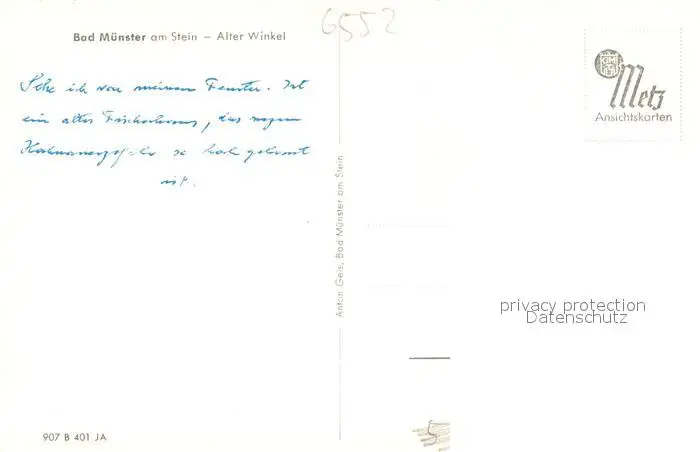 Bad Münster am Stein – Alter Winkel
6552
Sehe ich von meinem Fenster. Ist
ein altes Fischerhaus, das wegen
Hochwassergefahr so hoch gebaut
ist.
Anton Geis, Bad Münster am Stein
GM
Metz
Ansichtskarten
privacy protection
Datenschutz
5
907 B 401 JA